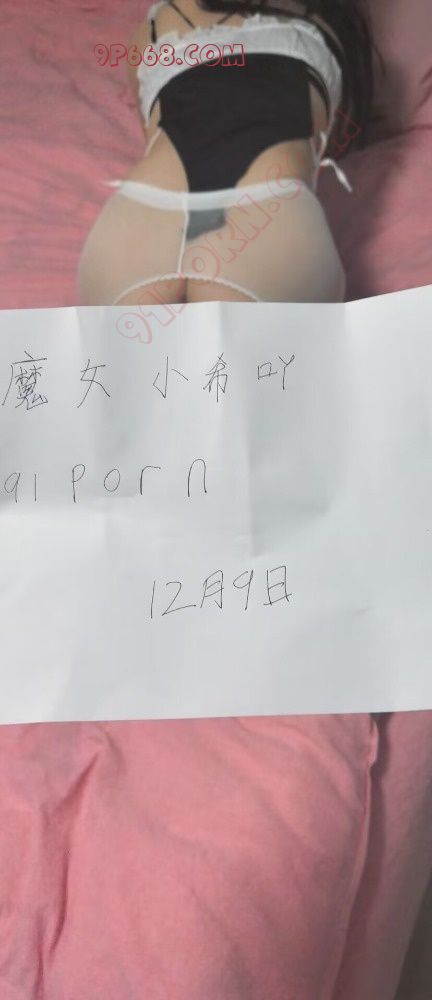 9P668.COM
91PORN.COM
魔女小希吖
91porn
12月9日